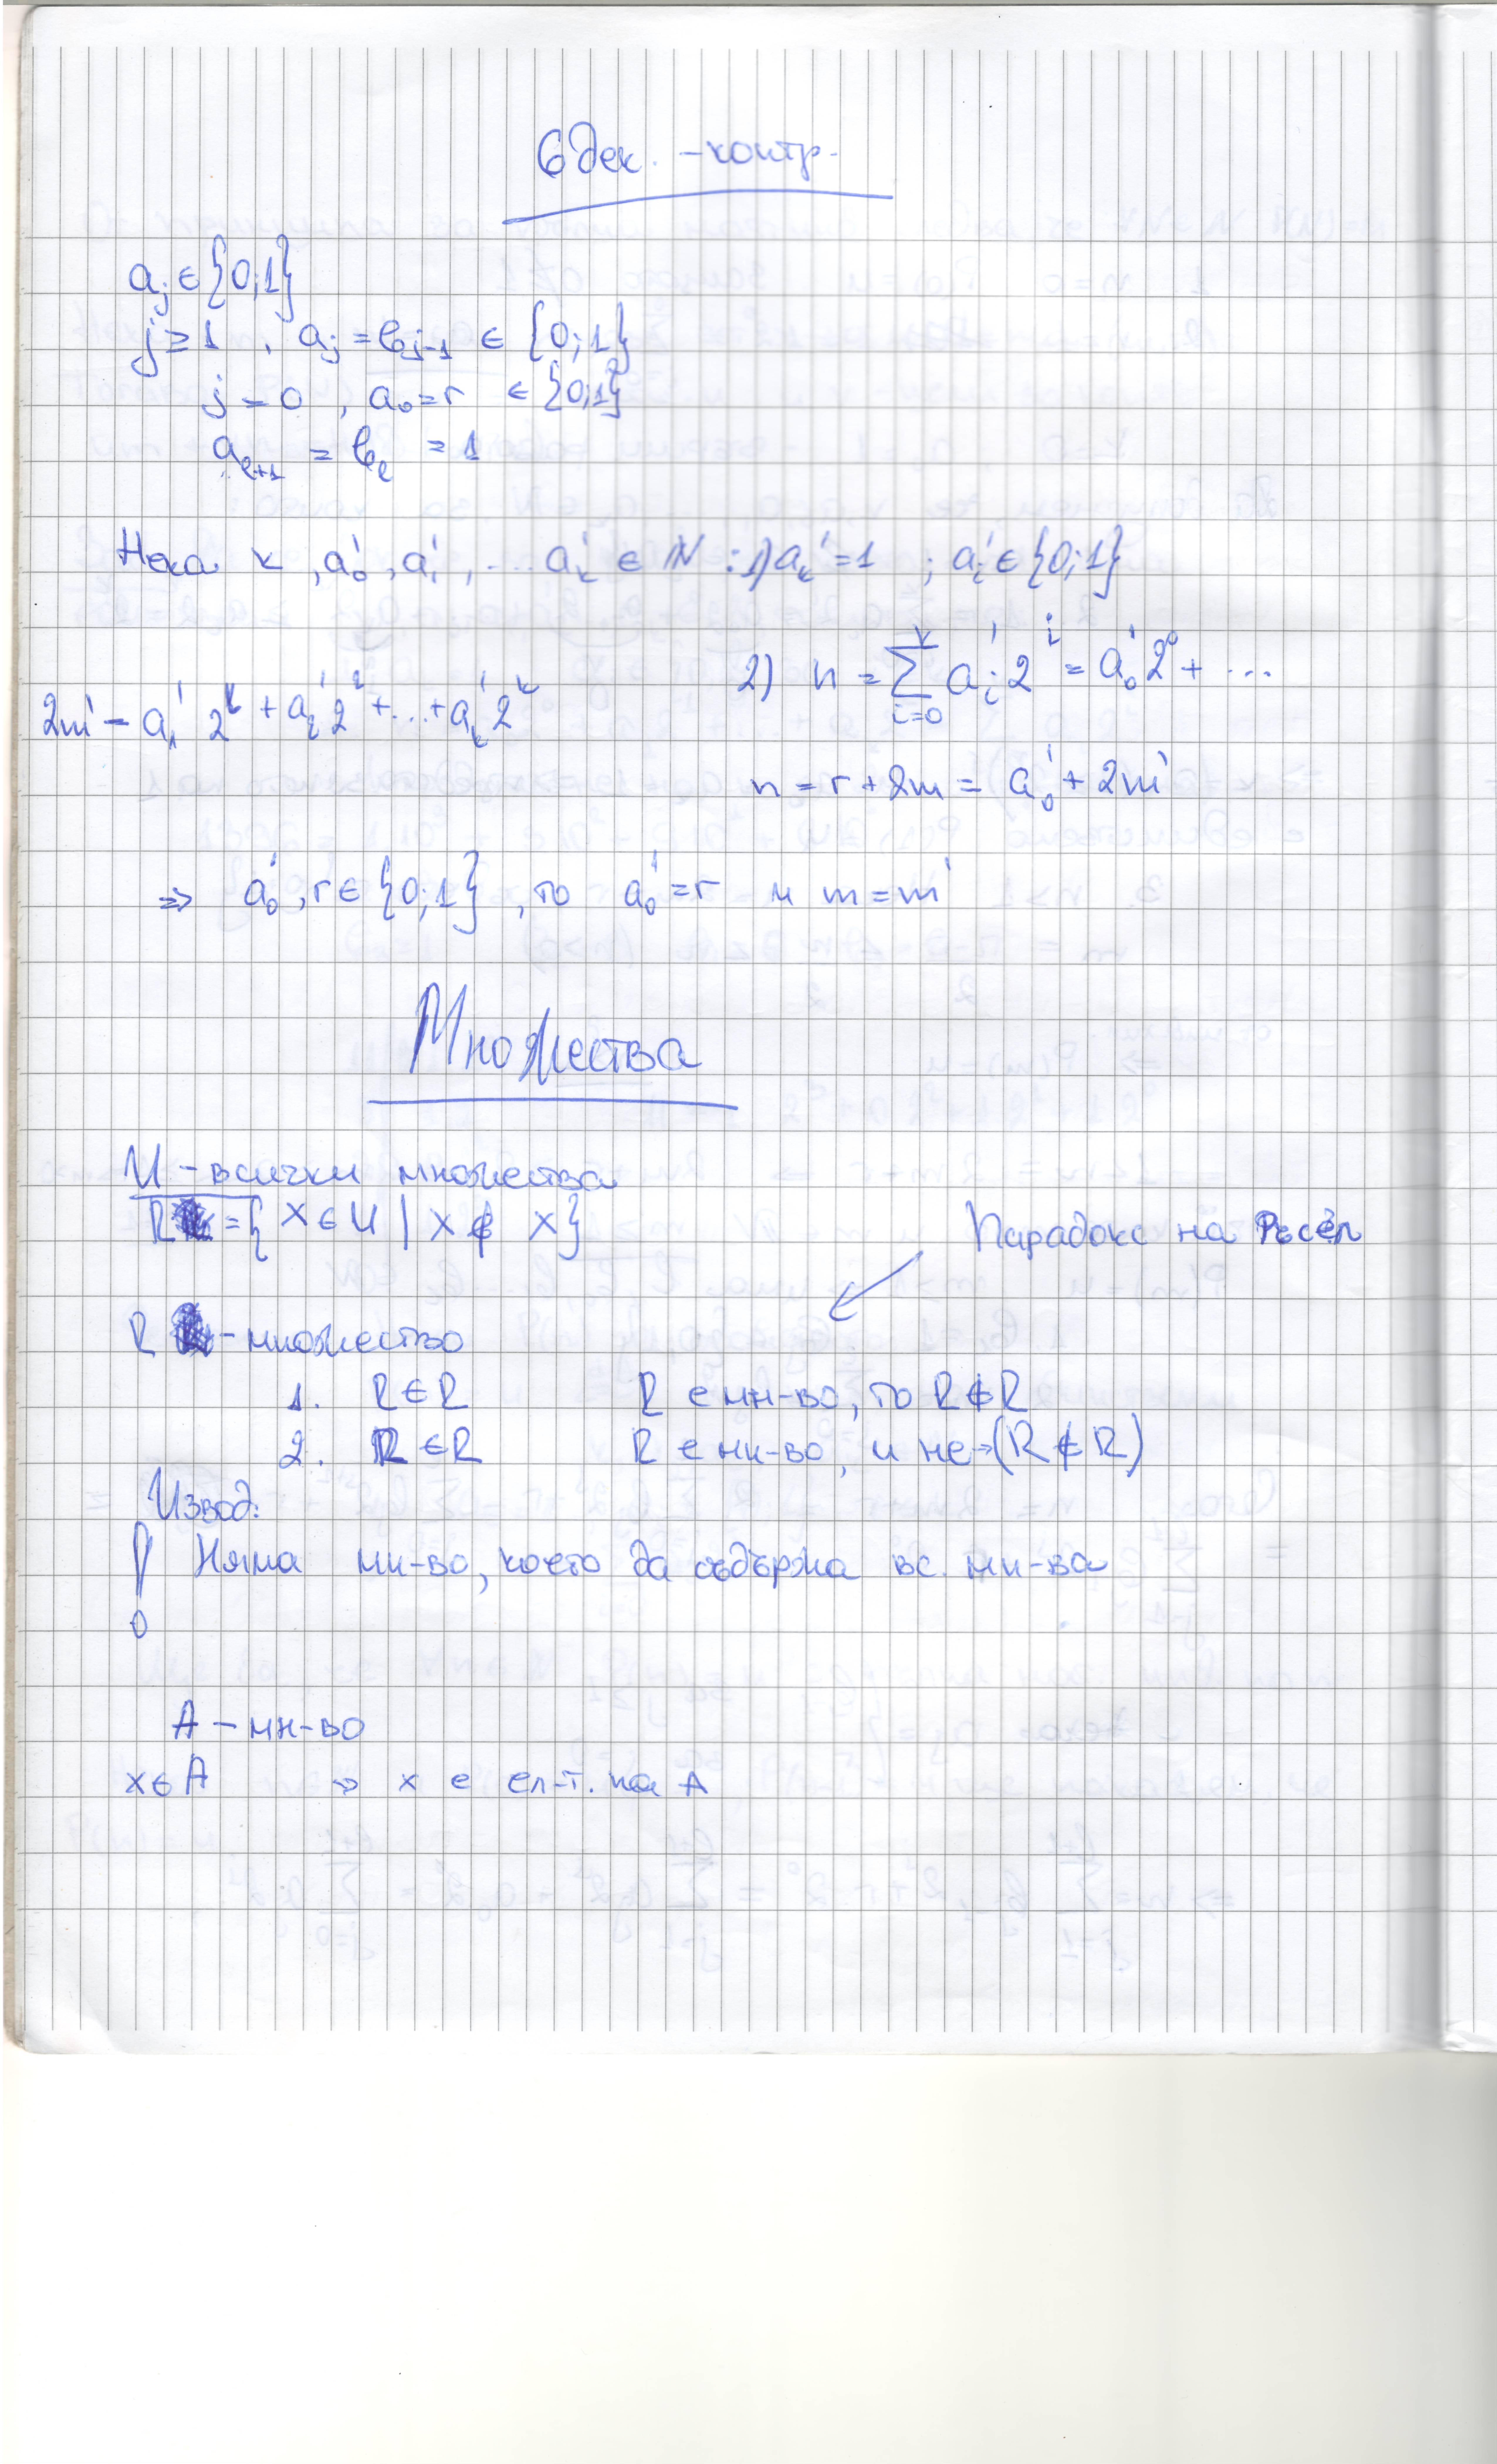 6 дек. - контр.
aⱼ ∈ {0;1}
j ≥ 1 , aⱼ = bⱼ₋₁ ∈ {0;1}
j = 0 , a₀ = r ∈ {0;1}
aₑ₊₁ = bₑ = 1
Нека k , a₀' , a₁' , ... aₖ' ∈ N : 1) aₖ' = 1 ; aᵢ' ∈ {0;1}
2) n = ∑ᵢ₌₀ᵏ aᵢ' 2ⁱ = a₀' 2⁰ + ...
2m' = a₁' 2¹ + a₂' 2² + ... + aₖ' 2ᵏ
n = r + 2m = a₀' + 2m'
=> a₀' , r ∈ {0;1} , то a₀' = r и m = m'
Множества
U - всички множества
R = { x ∈ U | x ∉ x}
Парадокс на Ръсел
R - множество
1. R ∈ R R е мн-во, то R ∉ R
2. R ∈ R R е мн-во, и не → (R ∉ R)
Извод:
! Няма мн-во, което да съдържа вс. мн-ва
A - мн-во
x ∈ A → x е ел-т. на A